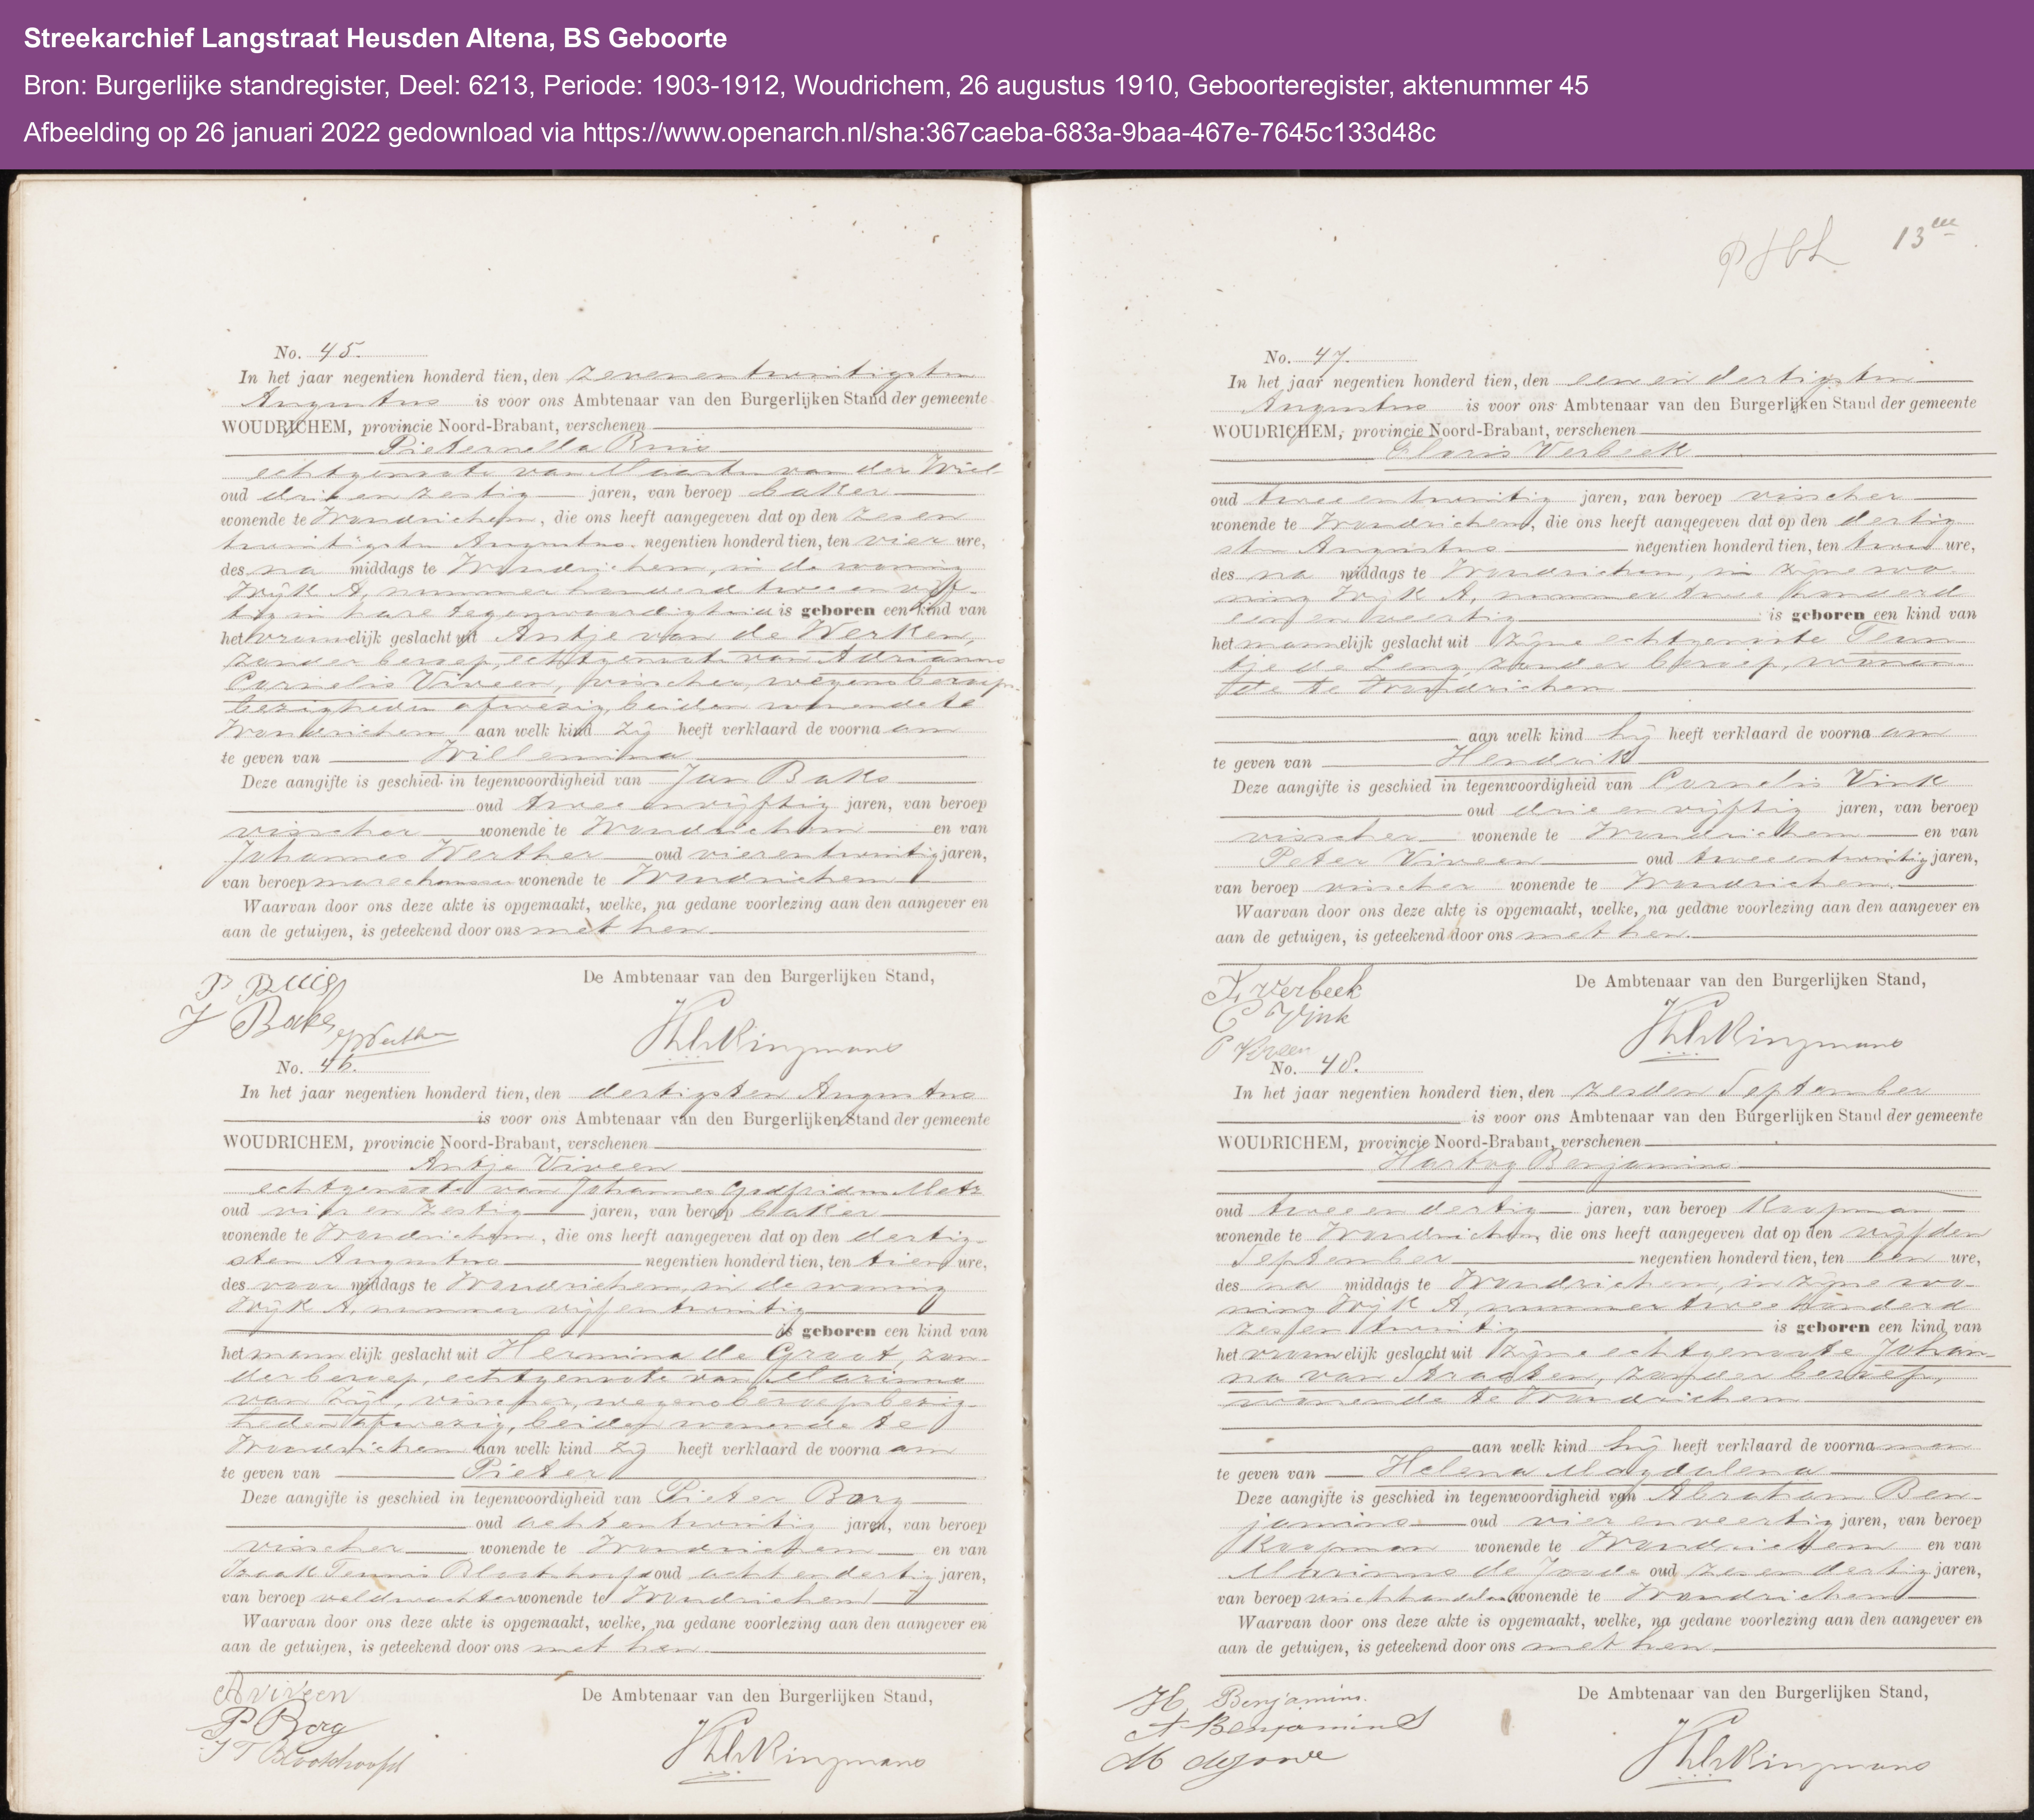 Streekarchief Langstraat Heusden Altena, BS Geboorte
Bron: Burgerlijke standregister, Deel: 6213, Periode: 1903-1912, Woudrichem, 26 augustus 1910, Geboorteregister, aktenummer 45
Afbeelding op 26 januari 2022 gedownload via https://www.openarch.nl/sha:367caeba-683a-9baa-467e-7645c133d48c
No. 45.
In het jaar negentien honderd tien, den zevenentwintigsten
Augustus is voor ons Ambtenaar van den Burgerlijken Stand der gemeente
WOUDRICHEM, provincie Noord-Brabant, verschenen
Pieternella
echtgenoote van Maarten van der Wiel
oud drie en zestig jaren, van beroep baker
wonende te Woudrichem, die ons heeft aangegeven dat op den zesen
twintigsten Augustus negentien honderd tien, ten vier ure,
des na middags te Woudrichem, in de woning
Wijk A, nummer honderd twee en vijf-
tig in hare tegenwoordigheid is geboren een kind van
het vrouwelijk geslacht uit Antje van de Werken,
zonder beroep, echtgenoote van Adrianus
Cornelis Viveen, visscher, wegens beroeps-
bezigheden afwezig, beiden wonende te
Woudrichem aan welk kind zij heeft verklaard de voornaam
te geven van Willemina
Deze aangifte is geschied in tegenwoordigheid van Jan Baks
oud twee en vijftig jaren, van beroep
visscher wonende te Woudrichem en van
Johannes Werther oud vierentwintig jaren,
van beroep marechaussee wonende te Woudrichem
Waarvan door ons deze akte is opgemaakt, welke, na gedane voorlezing aan den aangever en
aan de getuigen, is geteekend door ons met hen.
De Ambtenaar van den Burgerlijken Stand,
J Baks
No. 46.
In het jaar negentien honderd tien, den dertigsten Augustus
is voor ons Ambtenaar van den Burgerlijken Stand der gemeente
WOUDRICHEM, provincie Noord-Brabant, verschenen
Antje Viveen
echtgenoote van Johannes Metz
oud vier en zestig jaren, van beroep baker
wonende te Woudrichem, die ons heeft aangegeven dat op den dertig-
sten Augustus negentien honderd tien, ten tien ure,
des voor middags te Woudrichem, in de woning
Wijk A, nummer vijf en twintig
is geboren een kind van
het mannelijk geslacht uit Hermina de Graat, zon-
der beroep, echtgenoote van Marinus
van Zijl, visscher, wegens beroepsbezig-
heden afwezig, beiden wonende te
Woudrichem aan welk kind zij heeft verklaard de voornaam
te geven van Pieter
Deze aangifte is geschied in tegenwoordigheid van Pieter Borg
oud acht en twintig jaren, van beroep
visscher wonende te Woudrichem en van
Izaak Teunis Blookhoofd oud acht en dertig jaren,
van beroep veldwachter wonende te Woudrichem
Waarvan door ons deze akte is opgemaakt, welke, na gedane voorlezing aan den aangever en
aan de getuigen, is geteekend door ons met hen.
De Ambtenaar van den Burgerlijken Stand,
A Viveen
P Borg
I T Blookhoofd
13
No. 47.
In het jaar negentien honderd tien, den een en dertigsten
Augustus is voor ons Ambtenaar van den Burgerlijken Stand der gemeente
WOUDRICHEM, provincie Noord-Brabant, verschenen
Verbeek
oud twee en twintig jaren, van beroep visscher
wonende te Woudrichem, die ons heeft aangegeven dat op den dertig
sten Augustus negentien honderd tien, ten twee ure,
des na middags te Woudrichem, in zijne wo
ning Wijk A, nummer twee honderd
een en veertig is geboren een kind van
het mannelijk geslacht uit zijne echtgenoote Teun
tje de Leng, zonder beroep, wonen
de te Woudrichem
aan welk kind hij heeft verklaard de voornaam
te geven van Hendrik
Deze aangifte is geschied in tegenwoordigheid van Cornelis Vink
oud drie en vijftig jaren, van beroep
visscher wonende te Woudrichem en van
Peter Viveen oud twee en twintig jaren,
van beroep visscher wonende te Woudrichem.
Waarvan door ons deze akte is opgemaakt, welke, na gedane voorlezing aan den aangever en
aan de getuigen, is geteekend door ons met hen.
De Ambtenaar van den Burgerlijken Stand,
Verbeek
C Vink
P Viveen
No. 48.
In het jaar negentien honderd tien, den zesden September
is voor ons Ambtenaar van den Burgerlijken Stand der gemeente
WOUDRICHEM, provincie Noord-Brabant, verschenen
Hartog Benjamins
oud twee en dertig jaren, van beroep Koopman
wonende te Woudrichem, die ons heeft aangegeven dat op den vijfden
September negentien honderd tien, ten een ure,
des na middags te Woudrichem, in zijne wo-
ning Wijk A, nummer twee honderd
zes en twintig is geboren een kind van
het vrouwelijk geslacht uit zijne echtgenoote Johan-
na van Straaten, zonder beroep,
wonende te Woudrichem
aan welk kind hij heeft verklaard de voornamen
te geven van Helena Magdalena
Deze aangifte is geschied in tegenwoordigheid van Abraham Ben-
jamins oud vier en veertig jaren, van beroep
Koopman wonende te Woudrichem en van
Marinus de Joode oud zes en dertig jaren,
van beroep wonende te Woudrichem
Waarvan door ons deze akte is opgemaakt, welke, na gedane voorlezing aan den aangever en
aan de getuigen, is geteekend door ons met hen.
De Ambtenaar van den Burgerlijken Stand,
H. Benjamins.
A Benjamins
M